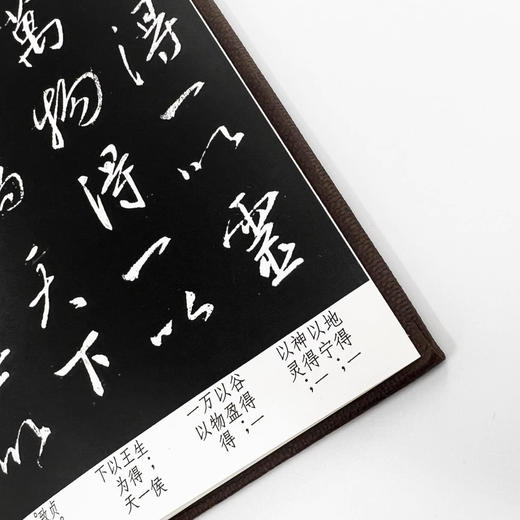 得一以靈
萬物得一以
天下
以
地得一
以宁；
神得一
以灵；
谷得一
以盈；
万物得
一以
生；侯
王得一
以为天
下
贞。